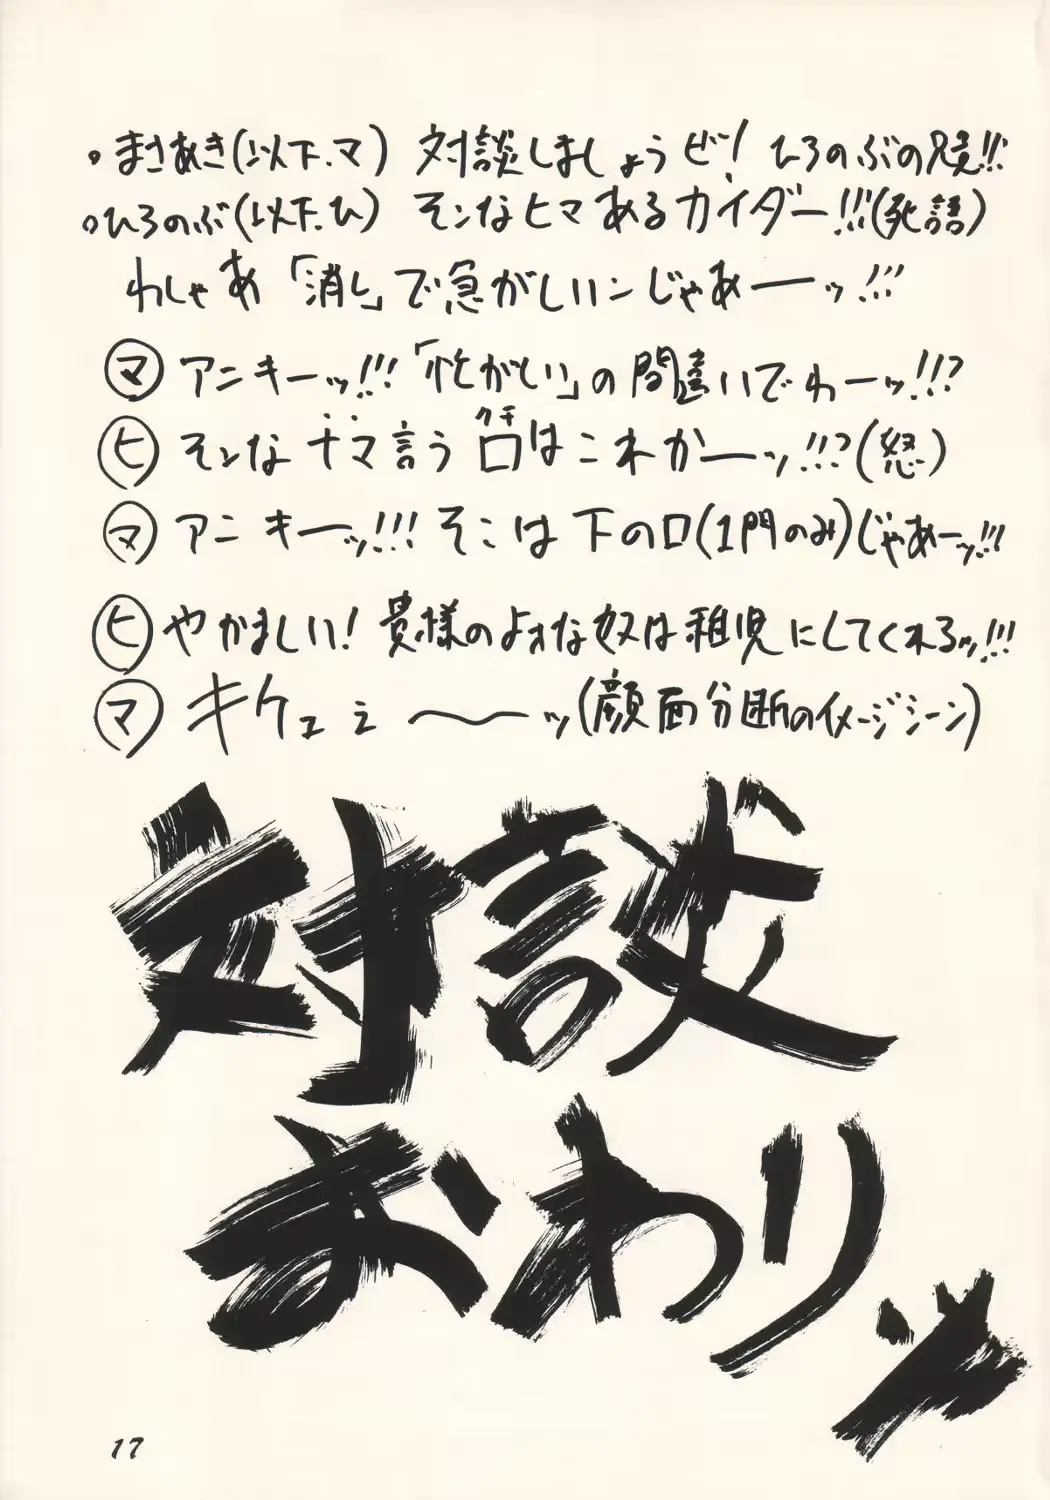 ・まさあき(以下.マ) 対談しましょうぜ! ひろのぶの兄貴!!!
・ひろのぶ(以下.ひ) そんなヒマあるカイダー!!!(死語)
わしゃあ「消し」で急がしいンじゃあーーッ!!!
マ アニキーッ!!!「忙がしい」の間違いでわーッ!!?
ヒ そんなナマ言う口はこれかーーッ!!!?(怒)
クチ
マ アニキーッ!!! そこは下の口(1門のみ)じゃあーッ!!!
ヒ やかましい! 貴様のよオな奴は稚児にしてくれるッ!!!
マ キケェェ〜〜ッ(顔面分断のイメージシーン)
対談
おわりッ
17